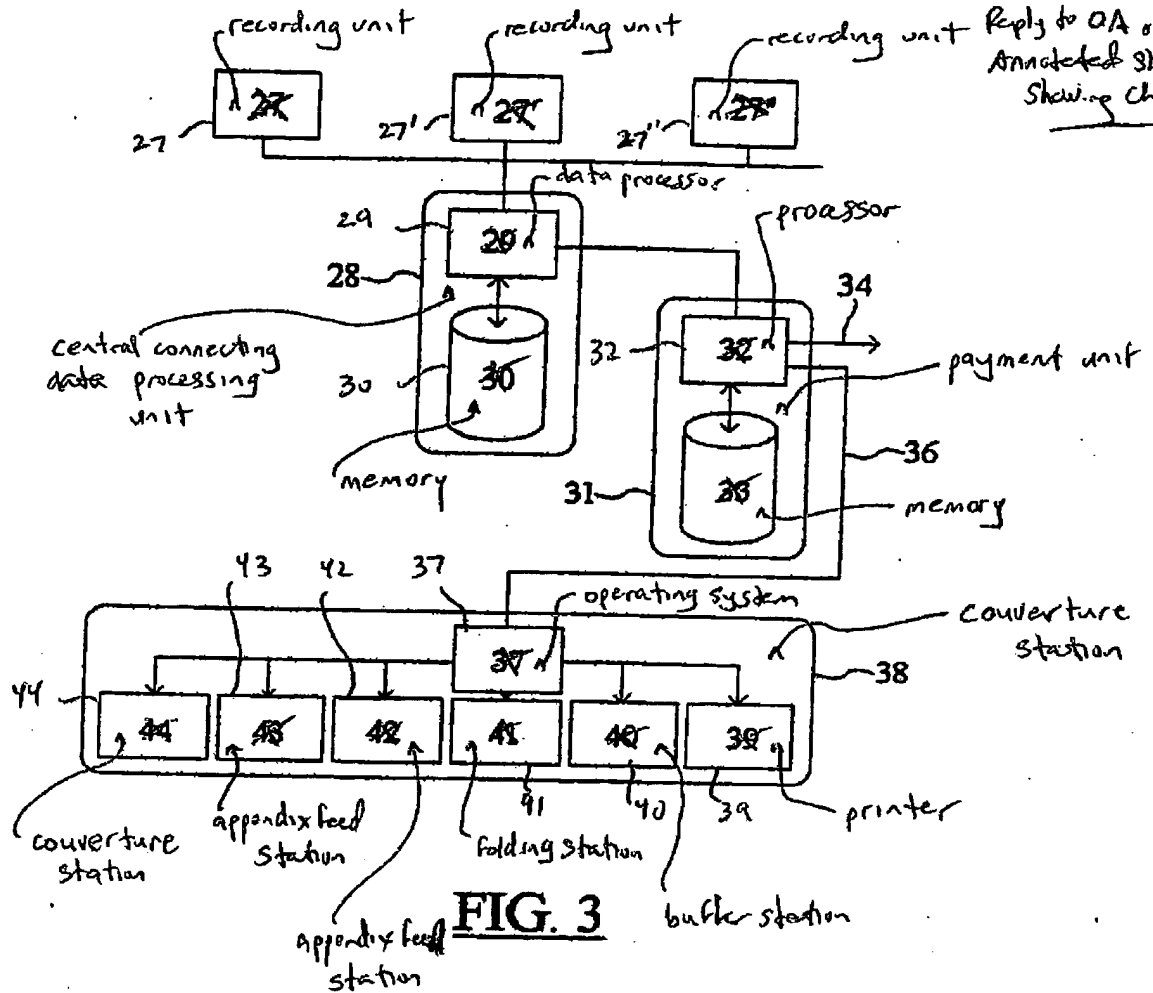 recording unit
recording unit
recording unit
Reply to OA
Annotated
Showing
27
27'
27"
27
27'
27"
data processor
29
29
processor
28
34
central connecting
data processing
unit
32
32
payment unit
30
30
36
memory
31
33
memory
43
42
37
operating system
couverture
station
37
38
44
44
43
42
41
40
39
41
40
39
printer
couverture
station
appendix feed
station
folding station
buffer station
appendix feed
station
FIG. 3